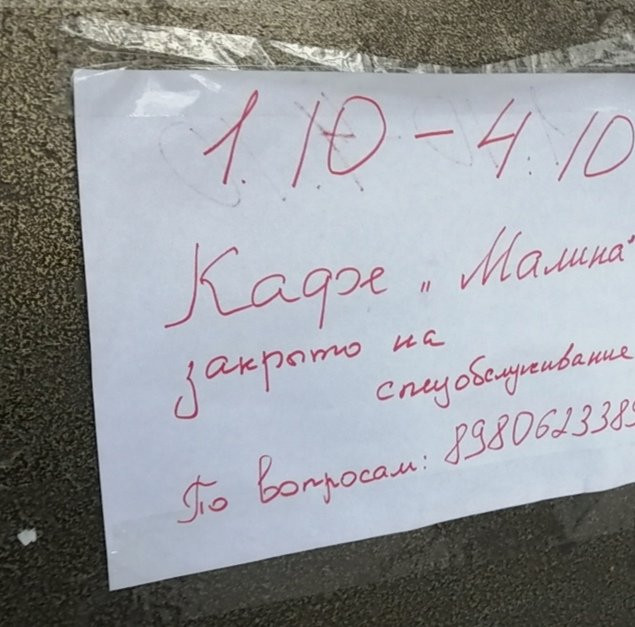 1.10 - 4.10
Кафе „Малина"
закрыто на
спецобслуживание
По вопросам: 8980623389